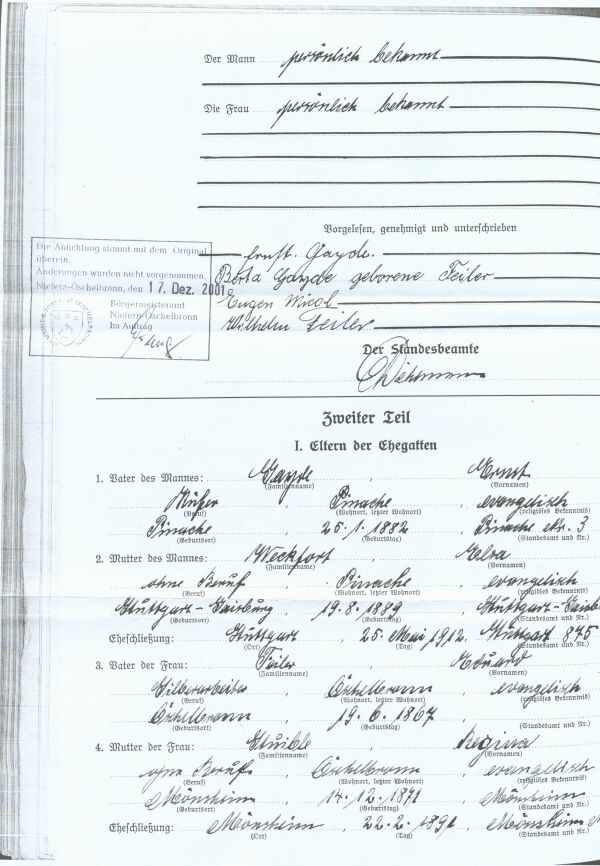 Der Mann persönlich bekannt
Die Frau persönlich bekannt
Vorgelesen, genehmigt und unterschrieben
Ernst Gayde.
Berta Gayde geborene Feiler
Eugen
Wilhelm Feiler
Der Standesbeamte
Die Ablichtung stimmt mit dem Original
überein.
Änderungen wurden nicht vorgenommen.
Niefern-Öschelbronn, den 17. Dez. 2001
Bürgermeisteramt
Niefern-Öschelbronn
Im Auftrag
Zweiter Teil
I. Eltern der Ehegatten
1. Vater des Mannes: Gayde, Ernst
(Familienname) (Vornamen)
Küfer, Pinache, evangelisch
(Beruf) (Wohnort, letzter Wohnort) (religiöses Bekenntnis)
Pinache, 25.1.1882, Pinache Nr. 3
(Geburtsort) (Geburtstag) (Standesamt und Nr.)
2. Mutter des Mannes: Weckfort, Elsa
(Familienname) (Vornamen)
ohne Beruf, Pinache, evangelisch
(Beruf) (Wohnort, letzter Wohnort) (religiöses Bekenntnis)
Stuttgart-Gaisburg, 19.8.1889, Stuttgart-Gaisb
(Geburtsort) (Geburtstag) (Standesamt und Nr.)
Eheschließung: Stuttgart, 25. Mai 1912. Stuttgart 875
(Ort) (Tag) (Standesamt und Nr.)
3. Vater der Frau: Feiler, Eduard
(Familienname) (Vornamen)
Silberarbeiter, Öschelbronn, evangelisch
(Beruf) (Wohnort, letzter Wohnort) (religiöses Bekenntnis)
Öschelbronn, 19.6.1867,
(Geburtsort) (Geburtstag) (Standesamt und Nr.)
4. Mutter der Frau: Stuible, Regina
(Familienname) (Vornamen)
ohne Beruf, Öschelbronn, evangelisch
(Beruf) (Wohnort, letzter Wohnort) (religiöses Bekenntnis)
Mönsheim, 14.12.1871, Mönsheim
(Geburtsort) (Geburtstag) (Standesamt und Nr.)
Eheschließung: Mönsheim, 22.2.1891, Mönsheim
(Ort) (Tag) (Standesamt und Nr.)